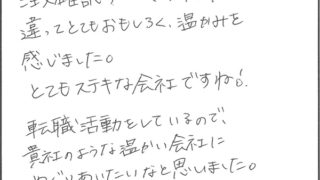 違ってとてもおもしろく、温かみを
感じました。
とてもステキな会社ですね!
転職活動をしているので、
貴社のような温かい会社に
めぐりあいたいなと思いました。